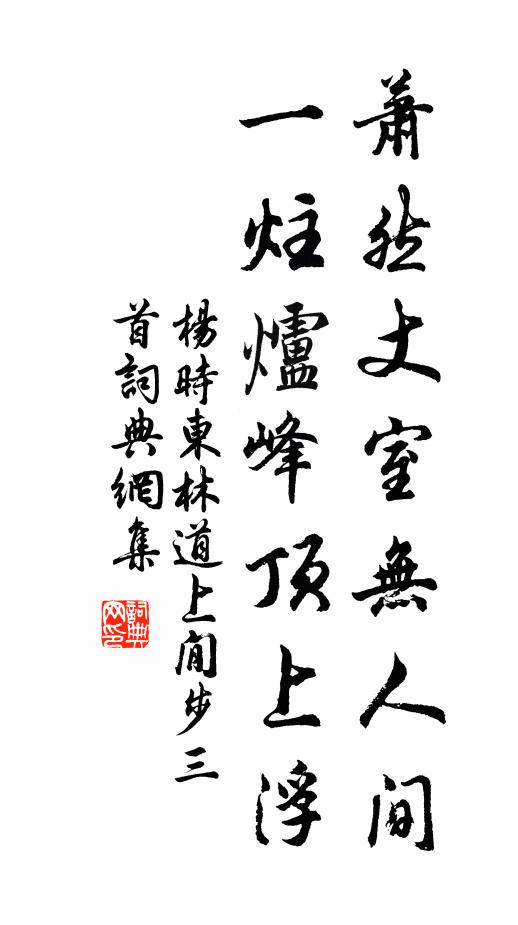 蕭然丈室無人間
一炷爐峰頂上浮
楊時東林道上閒步三
首詞典網集
詞典網印